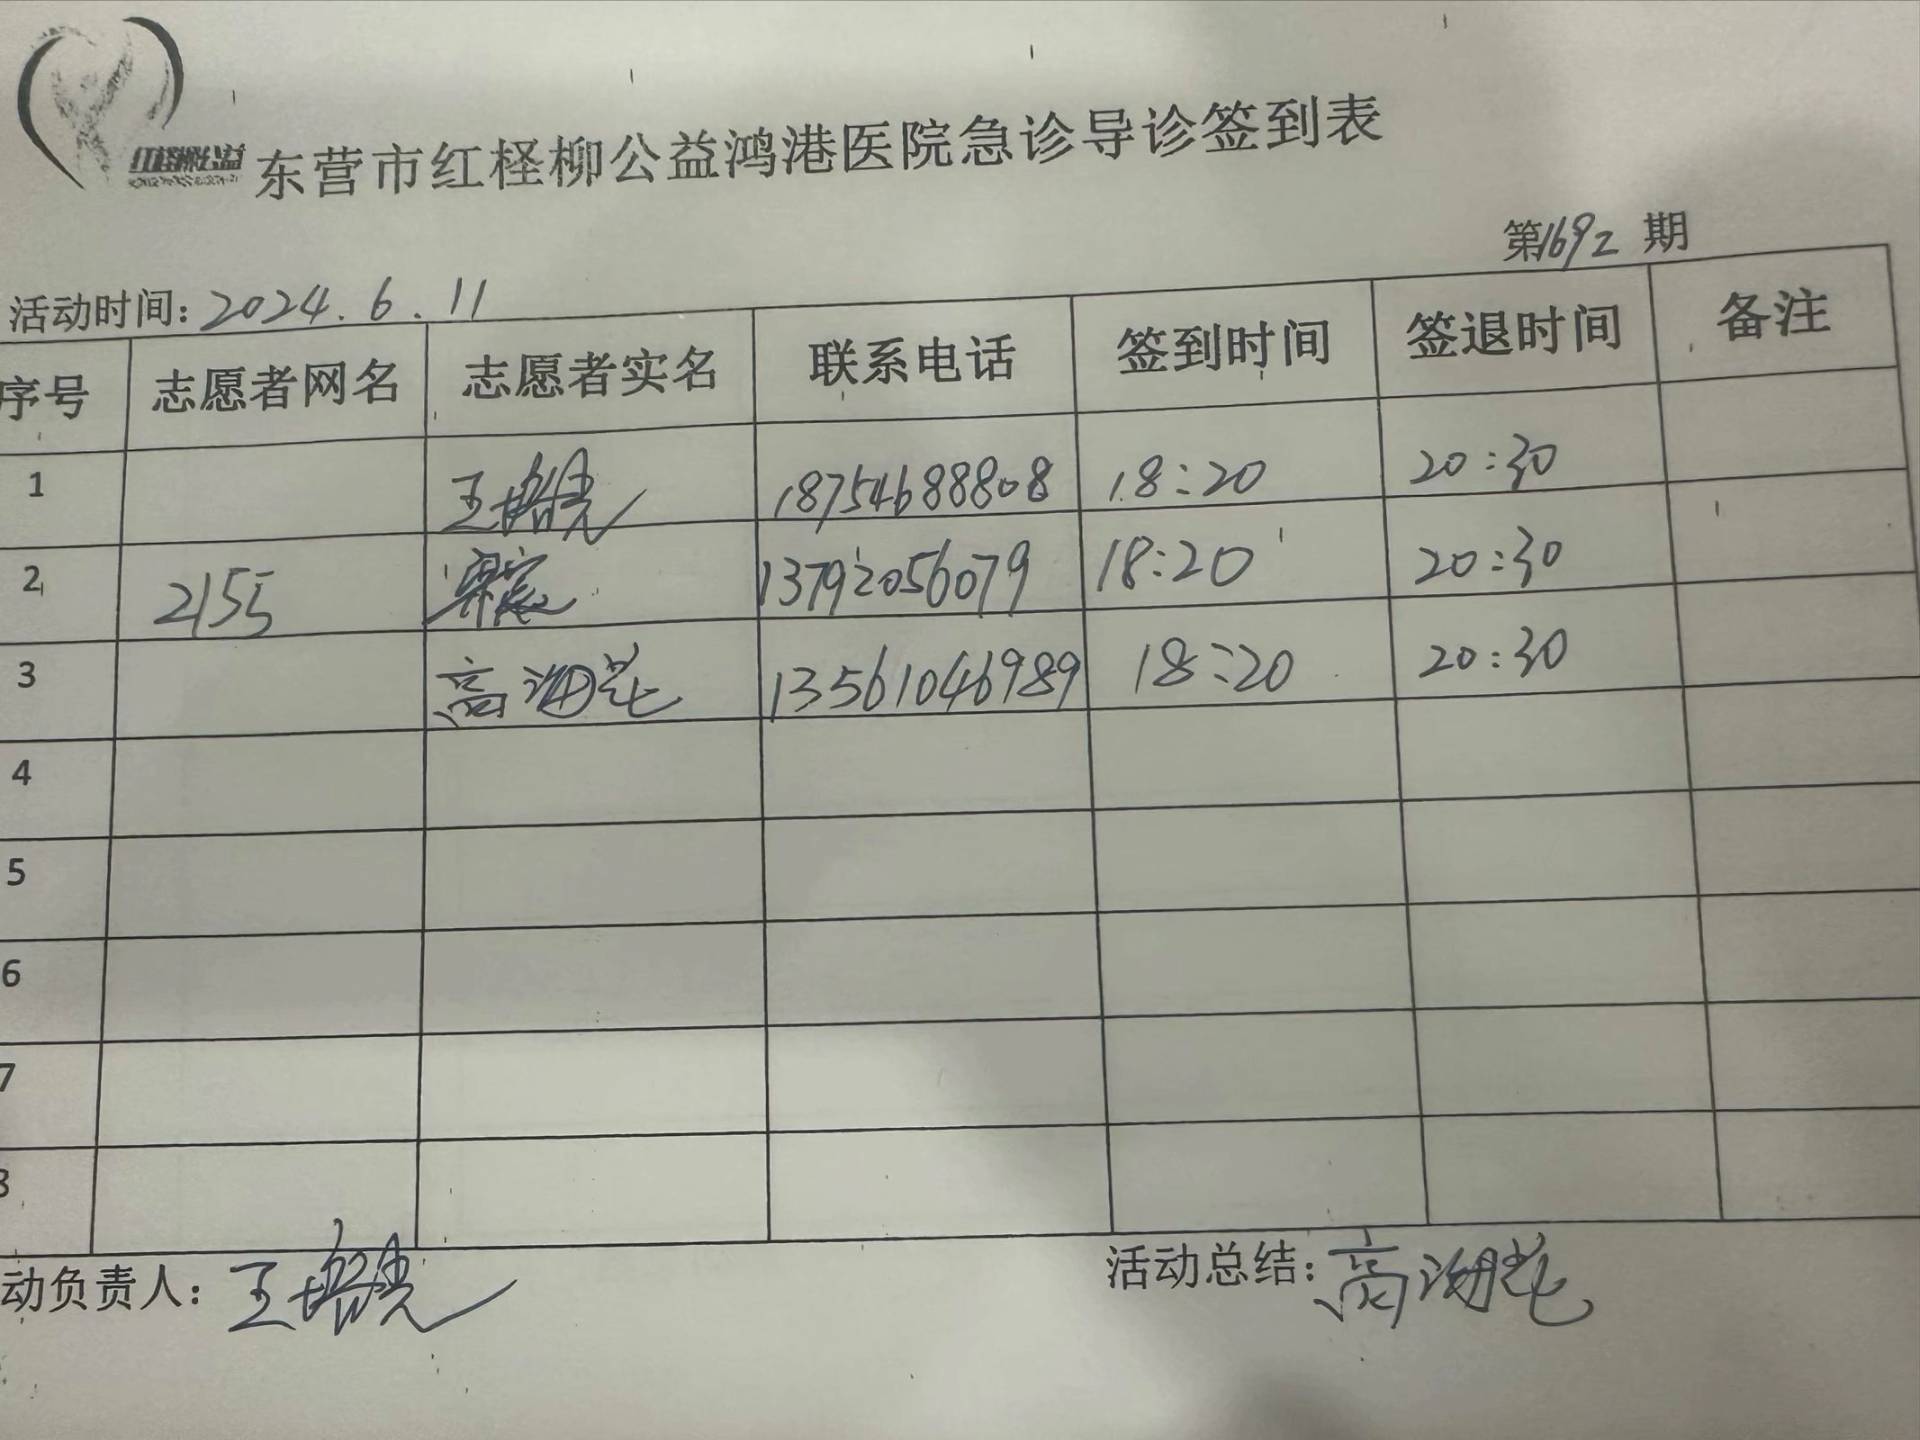 东营市红柽柳公益鸿港医院急诊导诊签到表
第1692期
活动时间：2024.6.11
序号 志愿者网名 志愿者实名 联系电话 签到时间 签退时间 备注
1 王培亮 18754688808 18:20 20:30
2 2155 13792056079 18:20 20:30
3 高 13561046989 18:20 20:30
4
5
6
7
8
动负责人：王培亮
活动总结：高